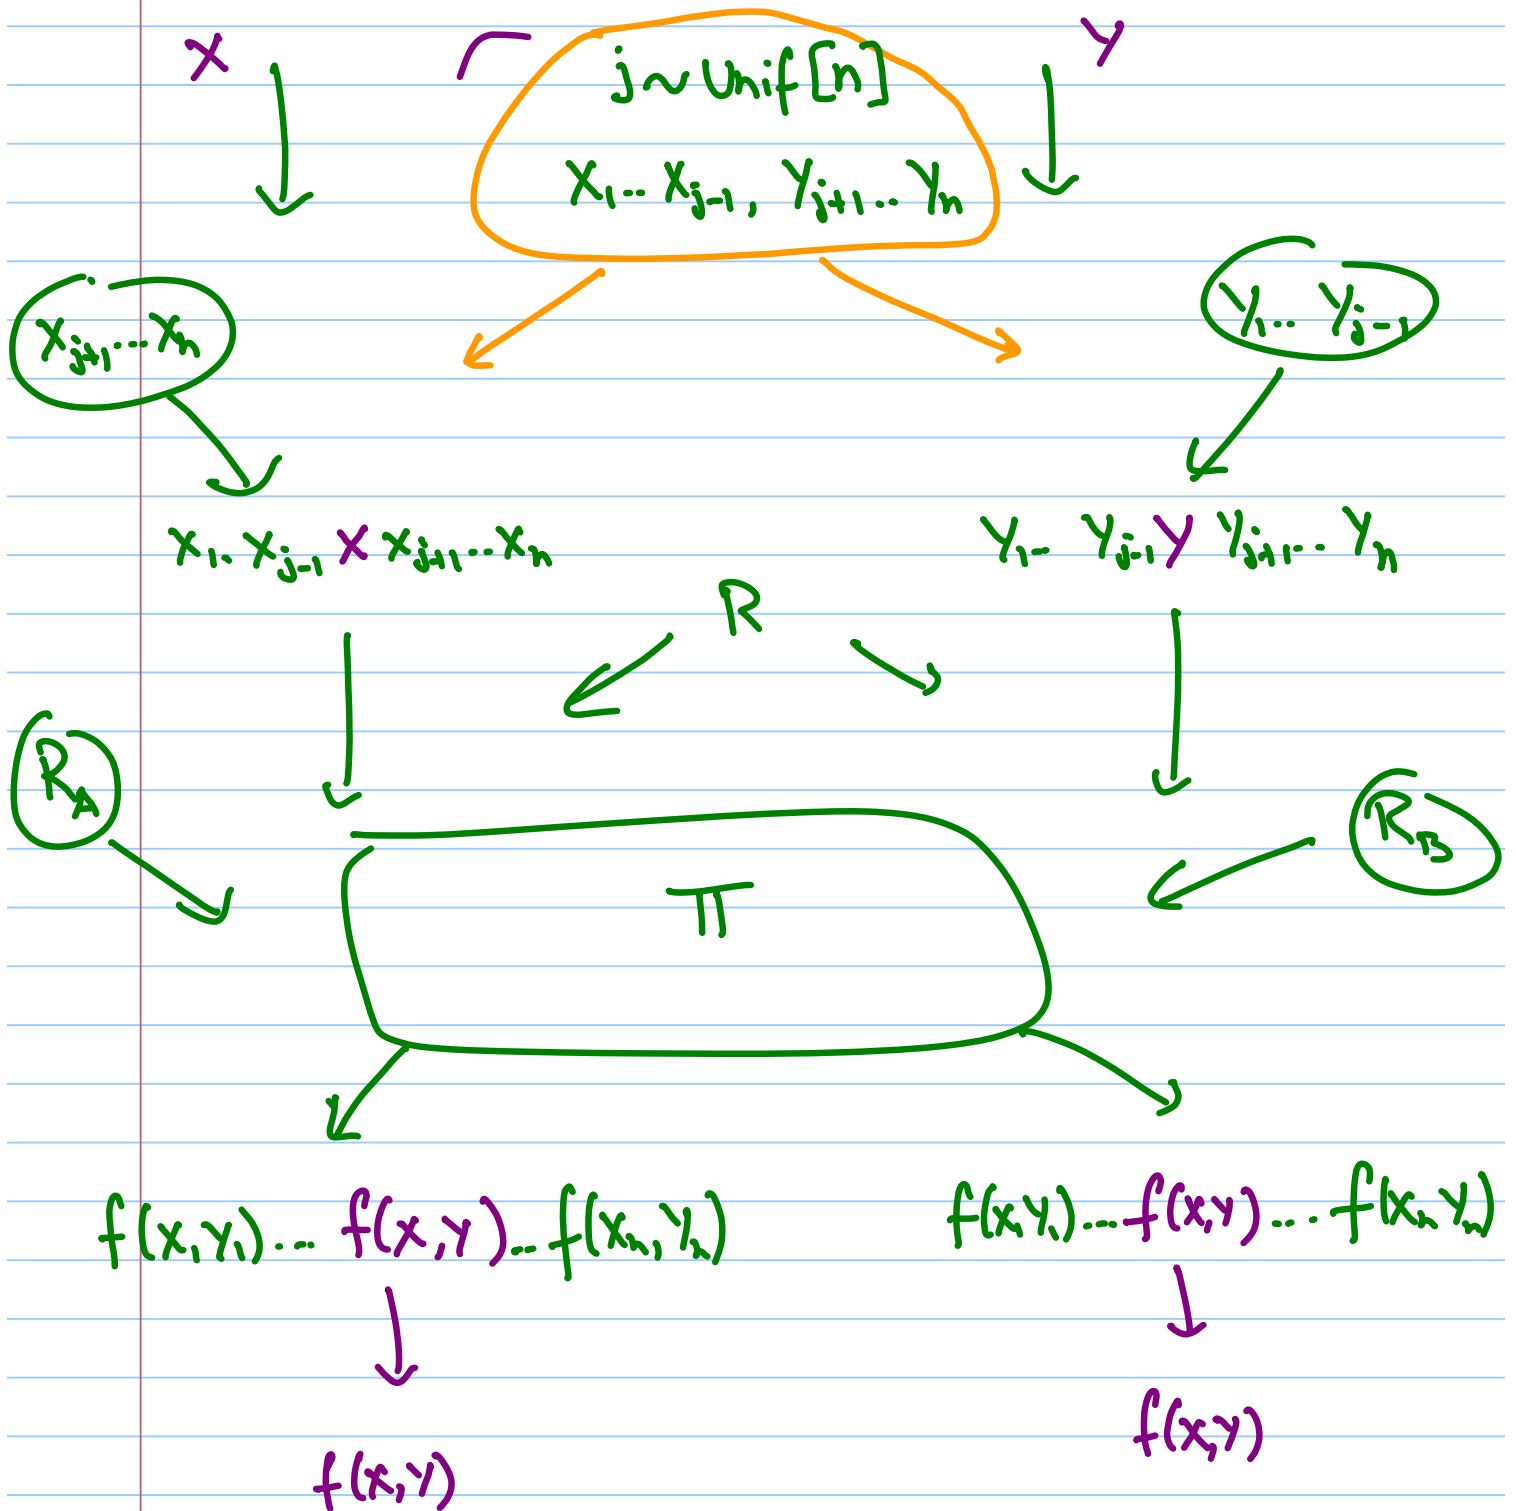 X Γ j ~ Unif [n] Y
X₁ ... Xⱼ₋₁, Yⱼ₊₁ ... Yₙ
Xⱼ₊₁ ... Xₙ Y₁ ... Yⱼ₋₁
X₁ .. Xⱼ₋₁ X Xⱼ₊₁ ... Xₙ Y₁ .. Yⱼ₋₁ Y Yⱼ₊₁ ... Yₙ
R
R_A R_B
π
f(X₁Y₁) .... f(X,Y) ... f(Xₙ,Yₙ) f(X₁Y₁) .... f(X,Y) .... f(Xₙ Yₙ)
f(X,Y)
f(X,Y)